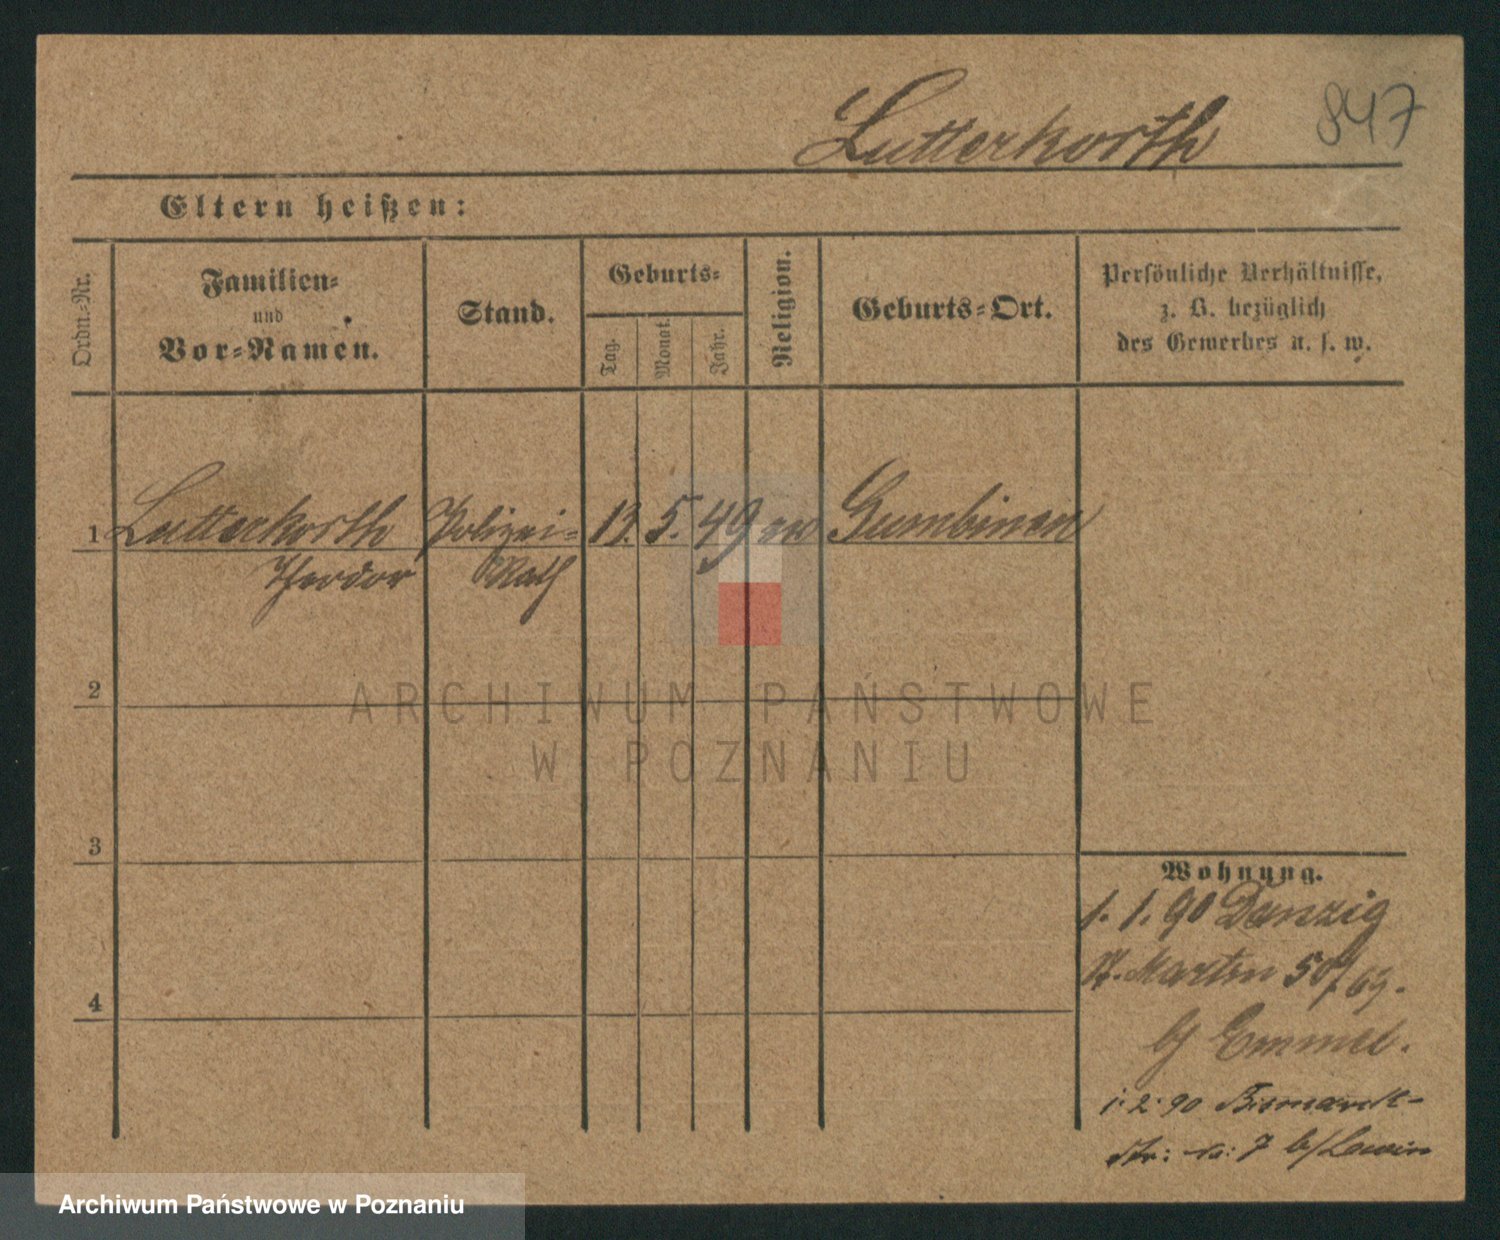 Lutterkorth 847
Eltern heißen:
Ordn.-Nr.
Familien-
und
Vor-Namen.
Stand.
Geburts-
Tag.
Monat.
Jahr.
Religion.
Geburts-Ort.
Persönliche Verhältnisse,
z. B. bezüglich
des Gewerbes u. s. w.
1 Lutterkorth Polizei- 13. 5. 49 Gumbinnen
Theodor Rath
2
3
4
Wohnung.
1. 1. 90 Danzig
St. Martin 50/63.
b/ Emmel.
1. 2. 90 Bismarck-
str: No: 7 b/ Lewin
ARCHIWUM PAŃSTWOWE
W POZNANIU
Archiwum Państwowe w Poznaniu